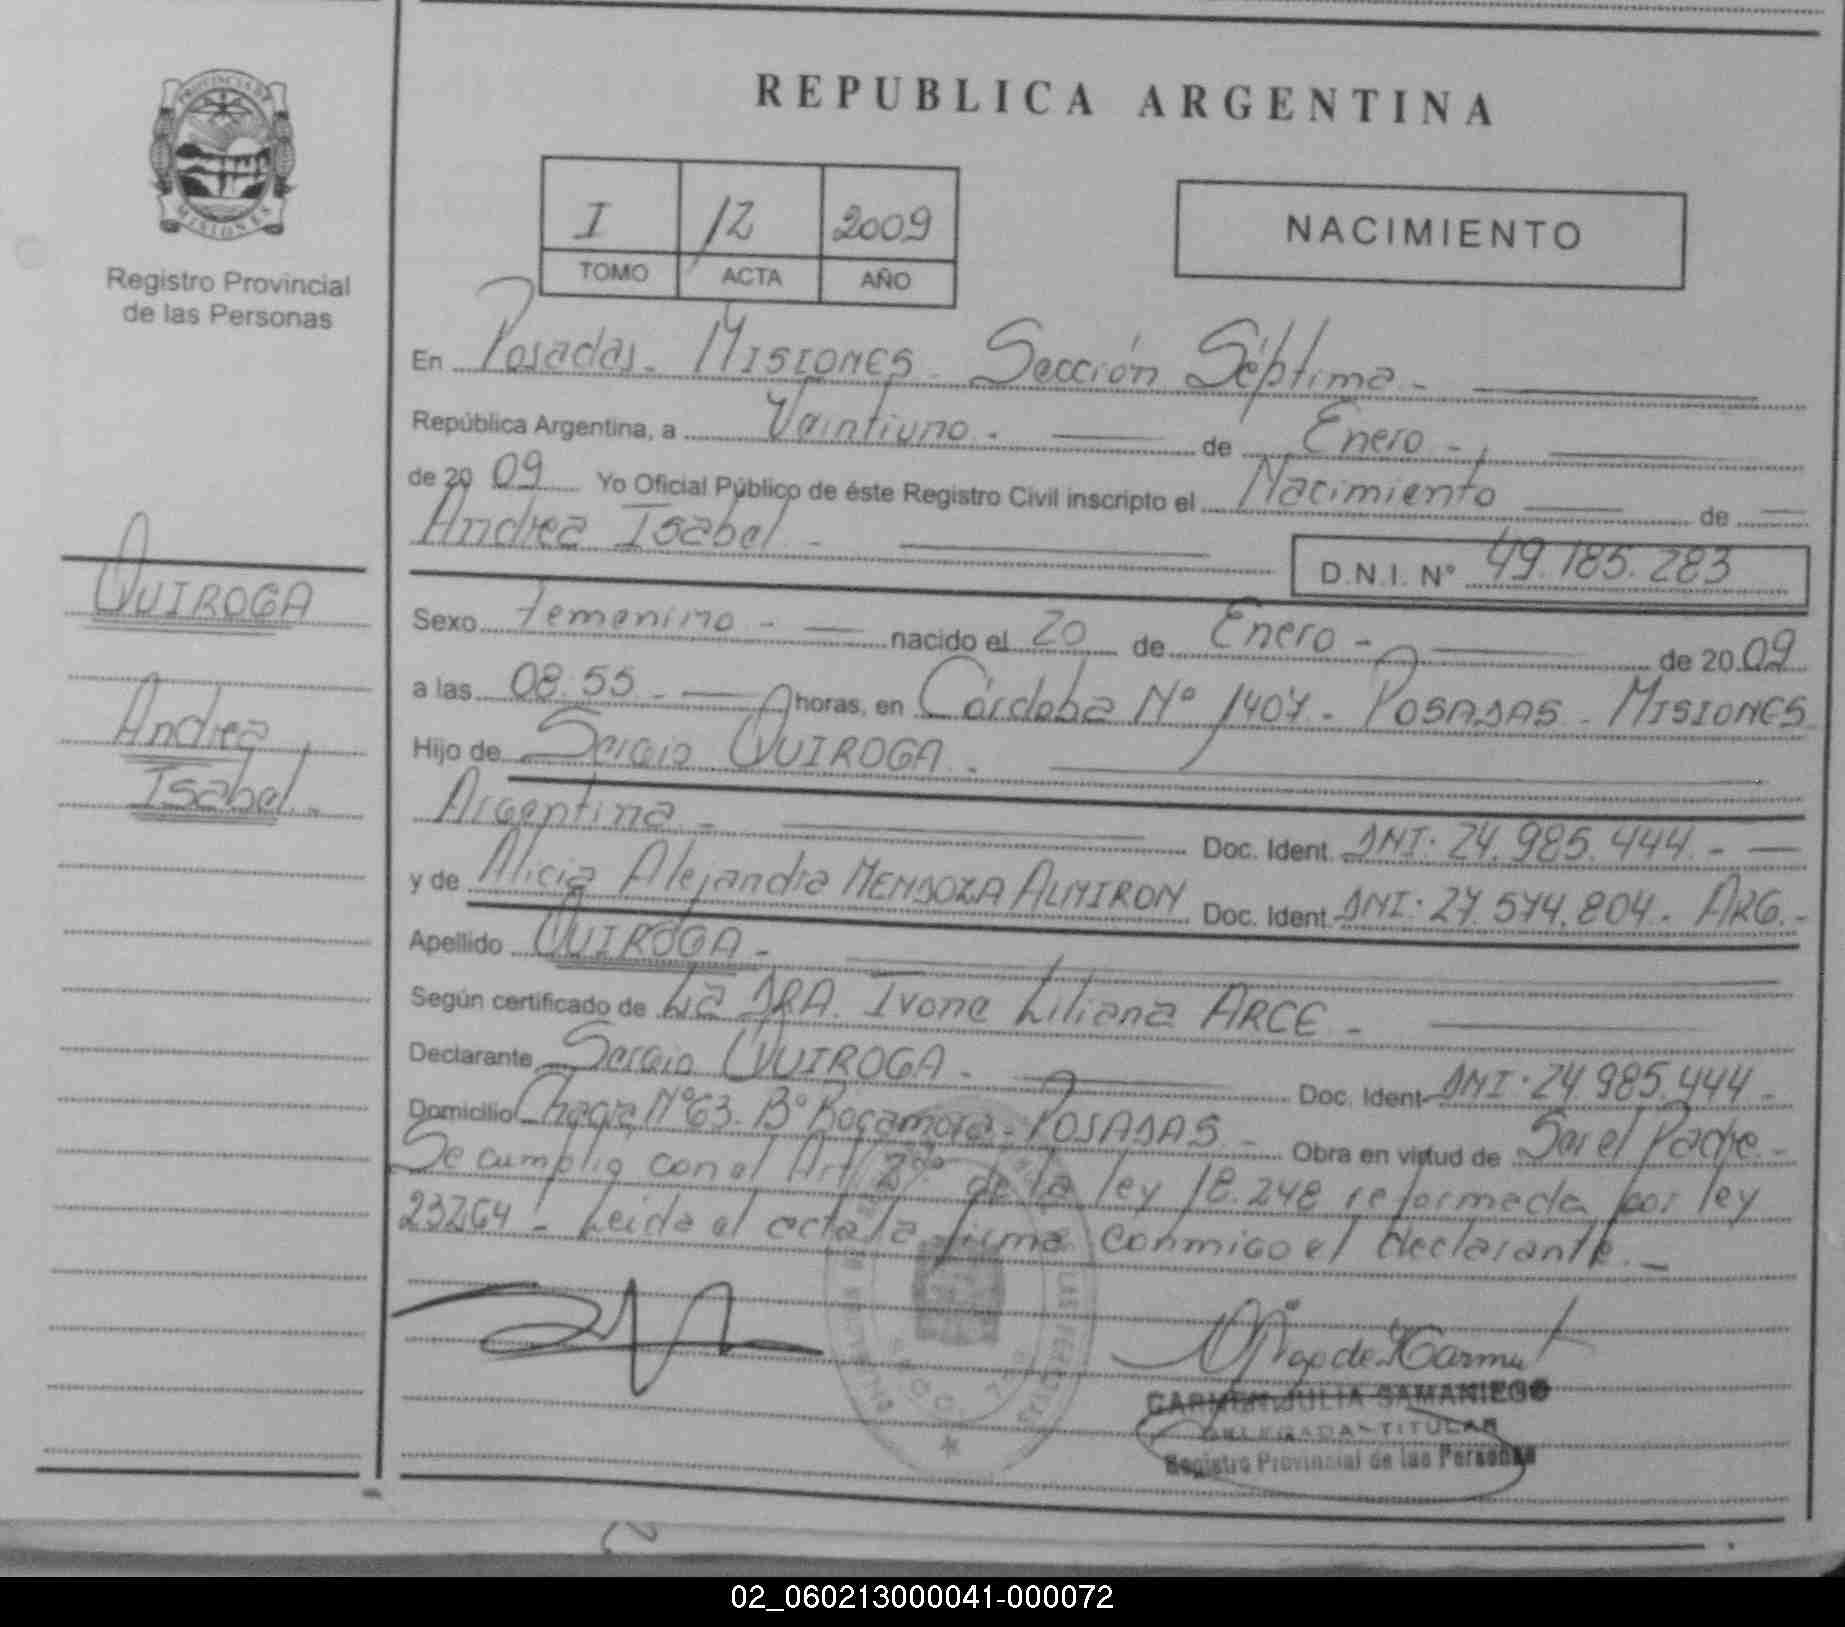 REPUBLICA ARGENTINA
PROVINCIA DE
MISIONES
Registro Provincial
de las Personas
I 12 2009
TOMO ACTA AÑO
NACIMIENTO
En Posadas - MISIONES - Sección Séptima -
República Argentina, a Veintiuno - de Enero -
de 2009 Yo Oficial Público de éste Registro Civil inscripto el Nacimiento de
Andrea Isabel -
D.N.I. Nº 49.185.283
QUIROGA
Andrea
Isabel -
Sexo femenino - nacido el 20 de Enero - de 2009
a las 08:55 - horas, en Córdoba Nº 1407 - POSADAS - MISIONES
Hijo de Sergio QUIROGA -
Argentina - Doc. Ident. DNI: 24.985.444 -
y de Alicia Alejandra MENDOZA ALMIRON Doc. Ident. DNI: 27.574.804 - ARG. -
Apellido QUIROGA -
Según certificado de La DRA. Ivone Liliana ARCE -
Declarante Sergio QUIROGA - Doc. Ident DNI: 24.985.444 -
Domicilio Chacra Nº 63 - Bº Rocamora - POSADAS - Obra en virtud de Ser el Padre -
Se cumplió con el Art 2º de la ley 18.248 reformada por ley
23264 - Leida el acta la firma conmigo el declarante. -
CARMEN JULIA SAMANIEGO
DELEGADA TITULAR
Registro Provincial de las Personas
02_060213000041-000072